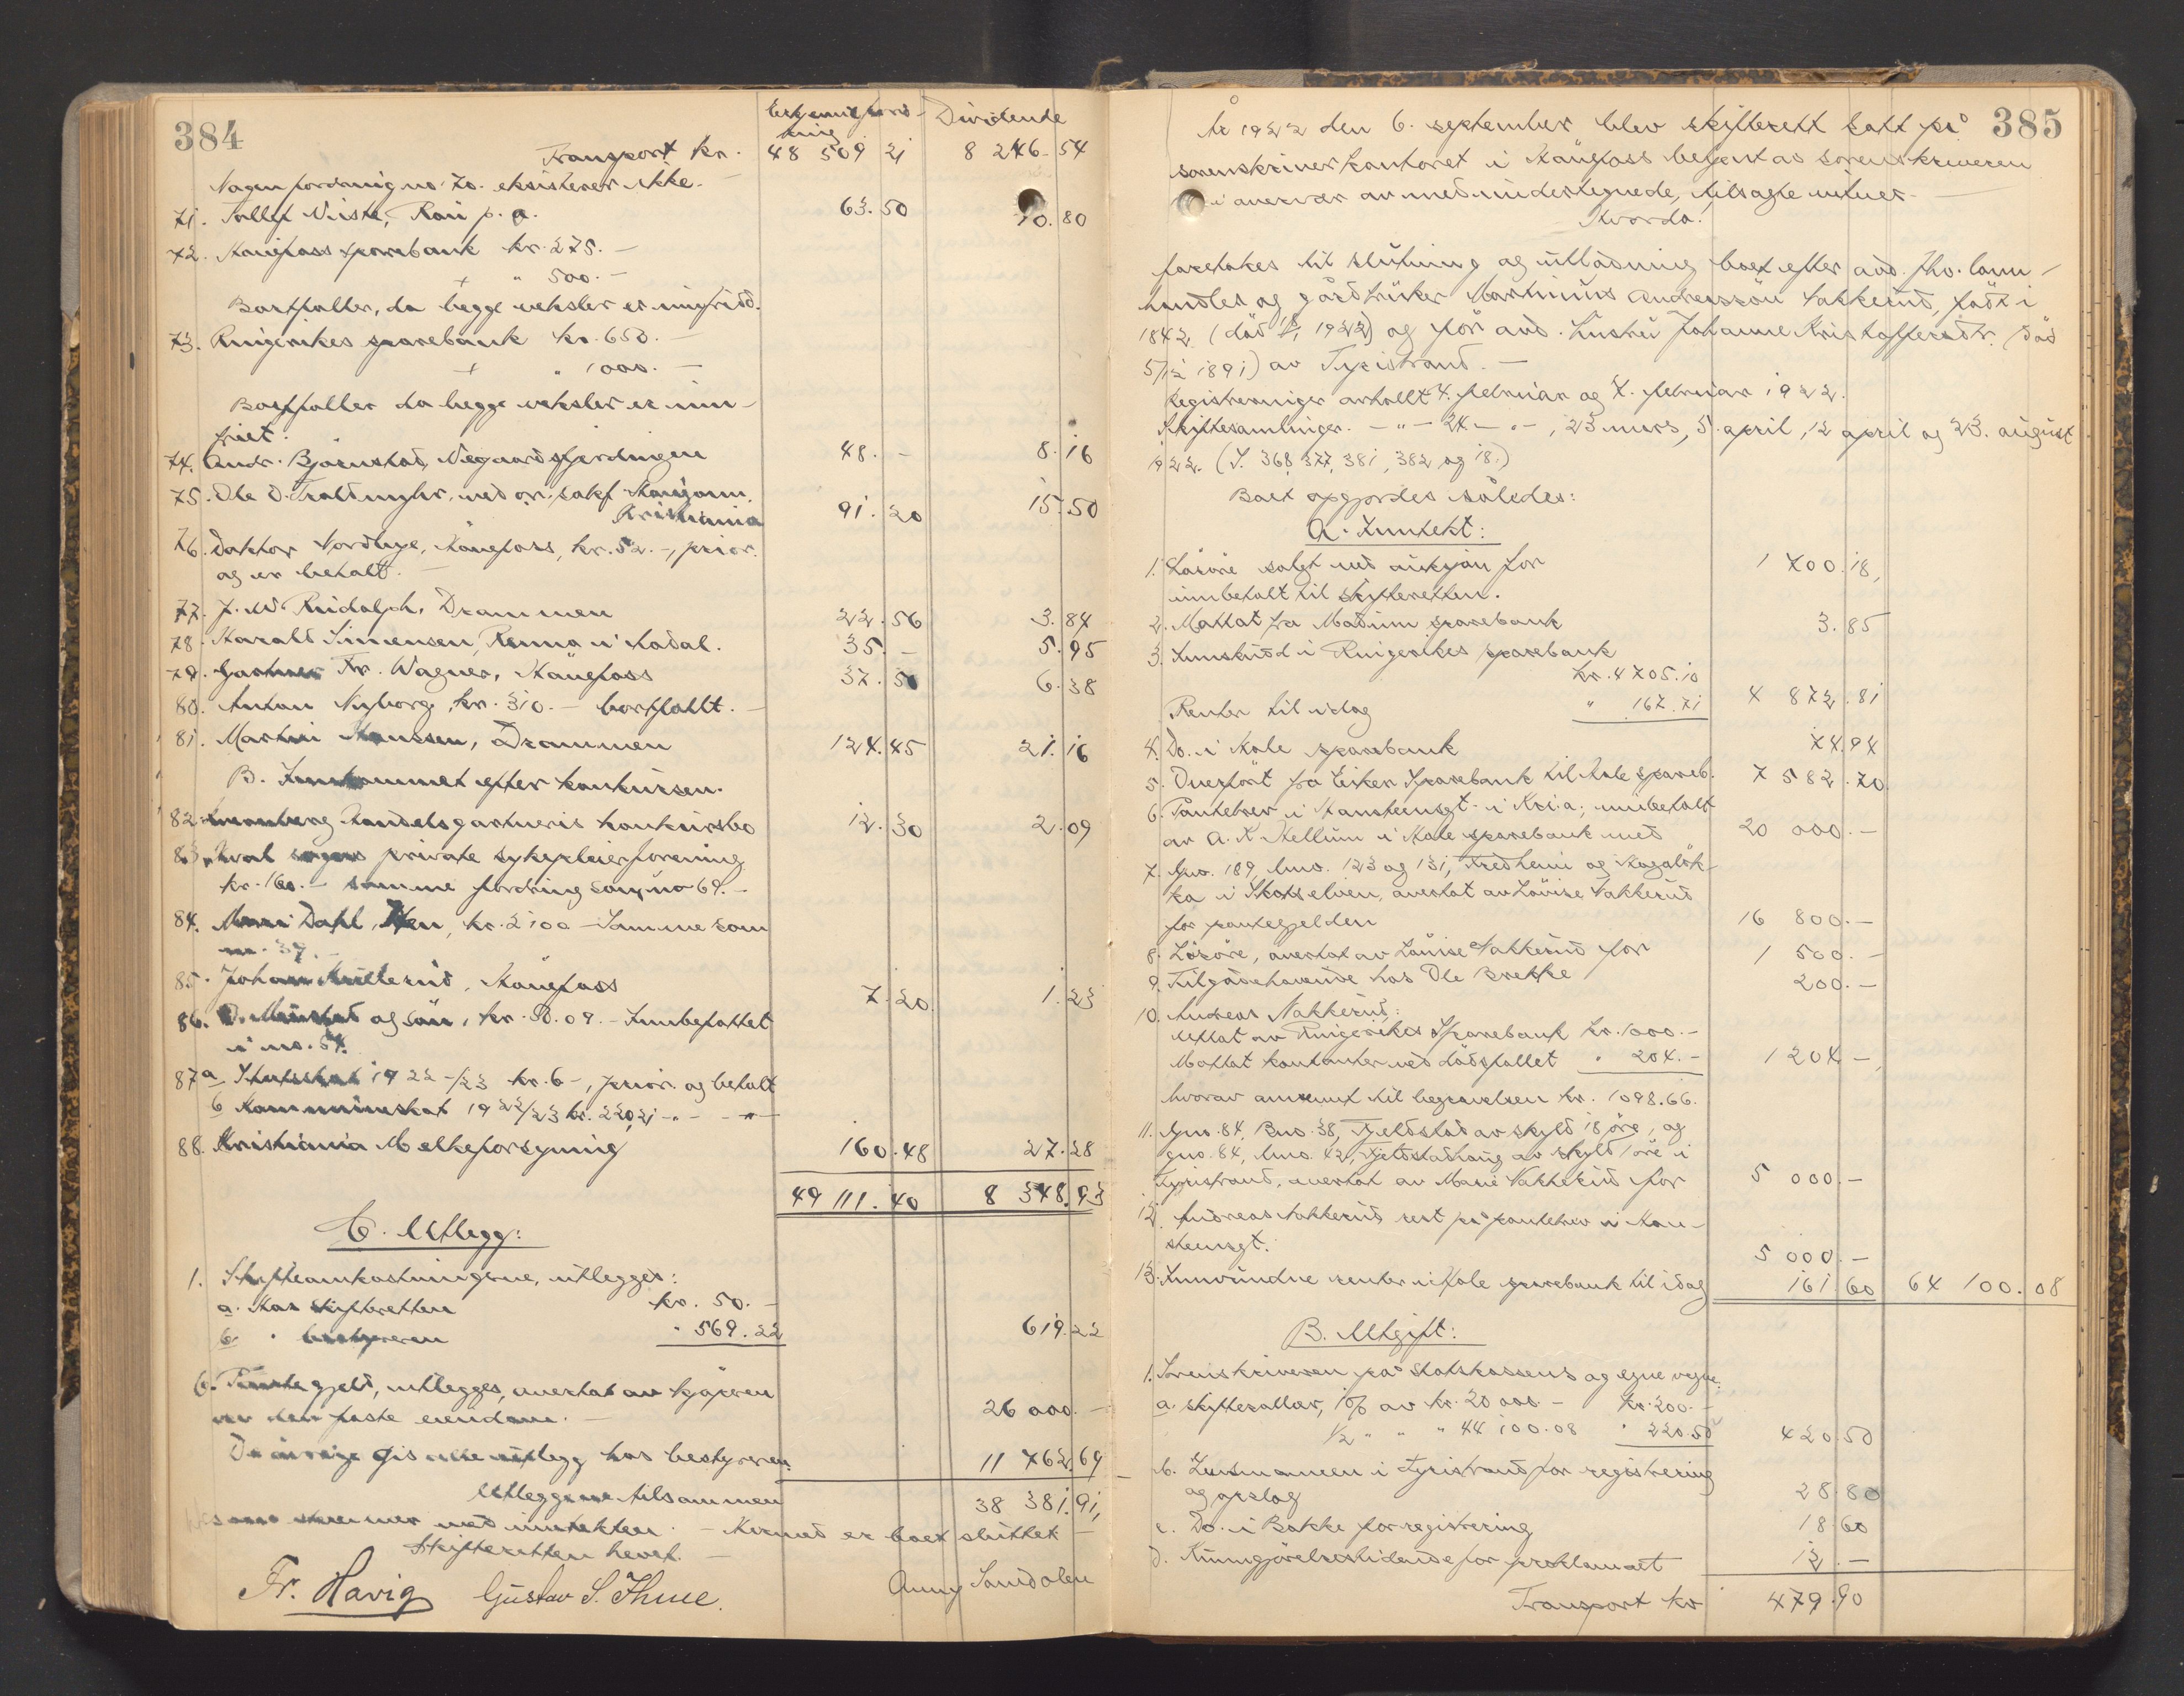 384
Dividende
Transport kr. 48 509 21 8 246 54
Nogen fordring no. 70. eksisterer ikke.
71. Tollef Viste, Rau p. a. 63.50 10.80
72. Hønefoss sparebank kr. 275.-
+ " 500.-
Bortfaller, da begge veksler er innfridd.
73. Ringerikes sparebank kr. 650.-
+ " 1000.-
Bortfaller da begge veksler er inn-
friet.
74. Andr. Bjørnstad, Vegårdsfjerdingen 48.- 8.16
75. Ole O. ved
Kristiania 91.20 15.50
76. Doktor Nordbye, Hønefoss, kr. 52.-, prior.
og er betalt.
77. J. W. Rudolph, Drammen 22.56 3.84
78. Harald Simensen, i Hadal. 35.- 5.95
79. Gartner Fr. Wagner, Hønefoss 37.50 6.38
80. Anton Nyborg, kr. 310.- bortfallt.
81. Martin Hanssen, Drammen 124.45 21.16
B. Innkommet efter konkursen.
82. Handelsgartneris konkursbo 12.30 2.09
83. Hval sogns private sykepleierforening
kr. 160.- samme fordring som no 69.-
84. Dahl, Hen, kr. 2100 - Samme som
no. 37.-
85. Johan , Hønefoss 7.20 1.23
86. og sön, kr. 50.09.- Innbefattet
i no. 54.
87 a Statsskat 1922-/23 kr. 6-, prior. og betalt
b Kommuneskat 1922/23 kr. 220,21 -"- -"-
88. Kristiania Melkeforsyning 160.48 27.28
49 111.40 8 348.93
C. Utlegg:
1. Skifteomkostningerne, utlegges:
a. Hos skifteretten kr. 50.-
b. " bestyreren " 569.22 619.22
6. Pantegjeld, utlegges, overtat av kjøperen
av den faste eiendom.- 26 000.-
De øvrige gis alle utlegg hos bestyreren. 11 762.69
Utleggene tilsammen 38 381.91,
som stemmer med inntekten. - Hermed er boet sluttet -
Skifteretten hevet.-
Fr. Havig Gustav S. Thue. Anny Sandolen
385
År 1922 den 6. september blev skifterett satt på
sorenskriverkontoret i Hønefoss betjent av sorenskriveren
i overvær av medundertegnede, tilsagte vitner.-
Hvorda.
foretokes til slutning og utlodning boet efter avd. fhv. lann-
handler og gårdbruker Marthinus Andreassøn Nakkerud, født i
1842 (död 1922) og før avd. hustru Johanne Kristoffersdtr. (död
5/12 1891) av Tyristrand.-
Registreringer avholdt 4. februar og 7. februar 1922.
Skiftesamlinger. -"- 24. -"-, 23 mars, 5. april, 12 april og 23. august
1922. (S. 368, 377, 381, 382 og 18.)
Boet opgjordes således:
A. Inntekt:
1. Løsøre solgt ved auksjon for
innbetalt til skifteretten. 1 700.18,
2. Mottat fra Modum sparebank 3.85
3. Innskudd i Ringerikes sparebank
kr. 4705.10
Renter til idag " 167.71 4 872.81
4. Do. i Hole sparebank 74.94
5. Overført fra Eiker Sparebank til Hole spareb. 7 582.70
6. Pantebrev i Hansteensgt. i Kr.a; innbetalt
av A. K. Mellum i Hole sparebank med 20 000.-
7. Gno. 189, bno. 123 og 131, Fredheim og Hagaløk-
ka i Skotselven, overtat av Lovise Nakkerud
for pantegjelden 16 800.-
8. Løsøre, overtat av Lovise Nakkerud for 1 500.-
9. Tilgodehavende hos Ole Brekke 200.-
10. Andreas Nakkerud:
uttat av Ringerikes Sparebank kr. 1000.-
Mottat kontanter ved dødsfallet " 204.- 1 204.-
hvorav anvendt til begravelsen kr. 1098.66.
11. Gno. 84, Bno. 38, Fjeldstad av skyld 18 øre, og
gno. 84, bno. 42, Fjeldstadhaug av skyld 1 øre i
Tyristrand, overtat av Marie Nakkerud for 5 000.-
12. Andreas Nakkerud, rest på pantebrev i Han-
steensgt. 5 000.-
13. Innvundne renter i Hole sparebank til idag 161.60 64 100.08
B. Utgift:
1. Sorenskriveren på statskassens og egne vegne:
a. skifterettlær, 1% av kr. 20 000.- kr. 200.-
1/2 " " " 44 100.08 " 220.50 420.50
b. Lensmannen i Tyristrand for registrering
og opslag 28.80
c. Do. i Bakke for registrering 18.60
d. Kunngjørelsestidende for proklamaet 12.-
Transport kr 479.90